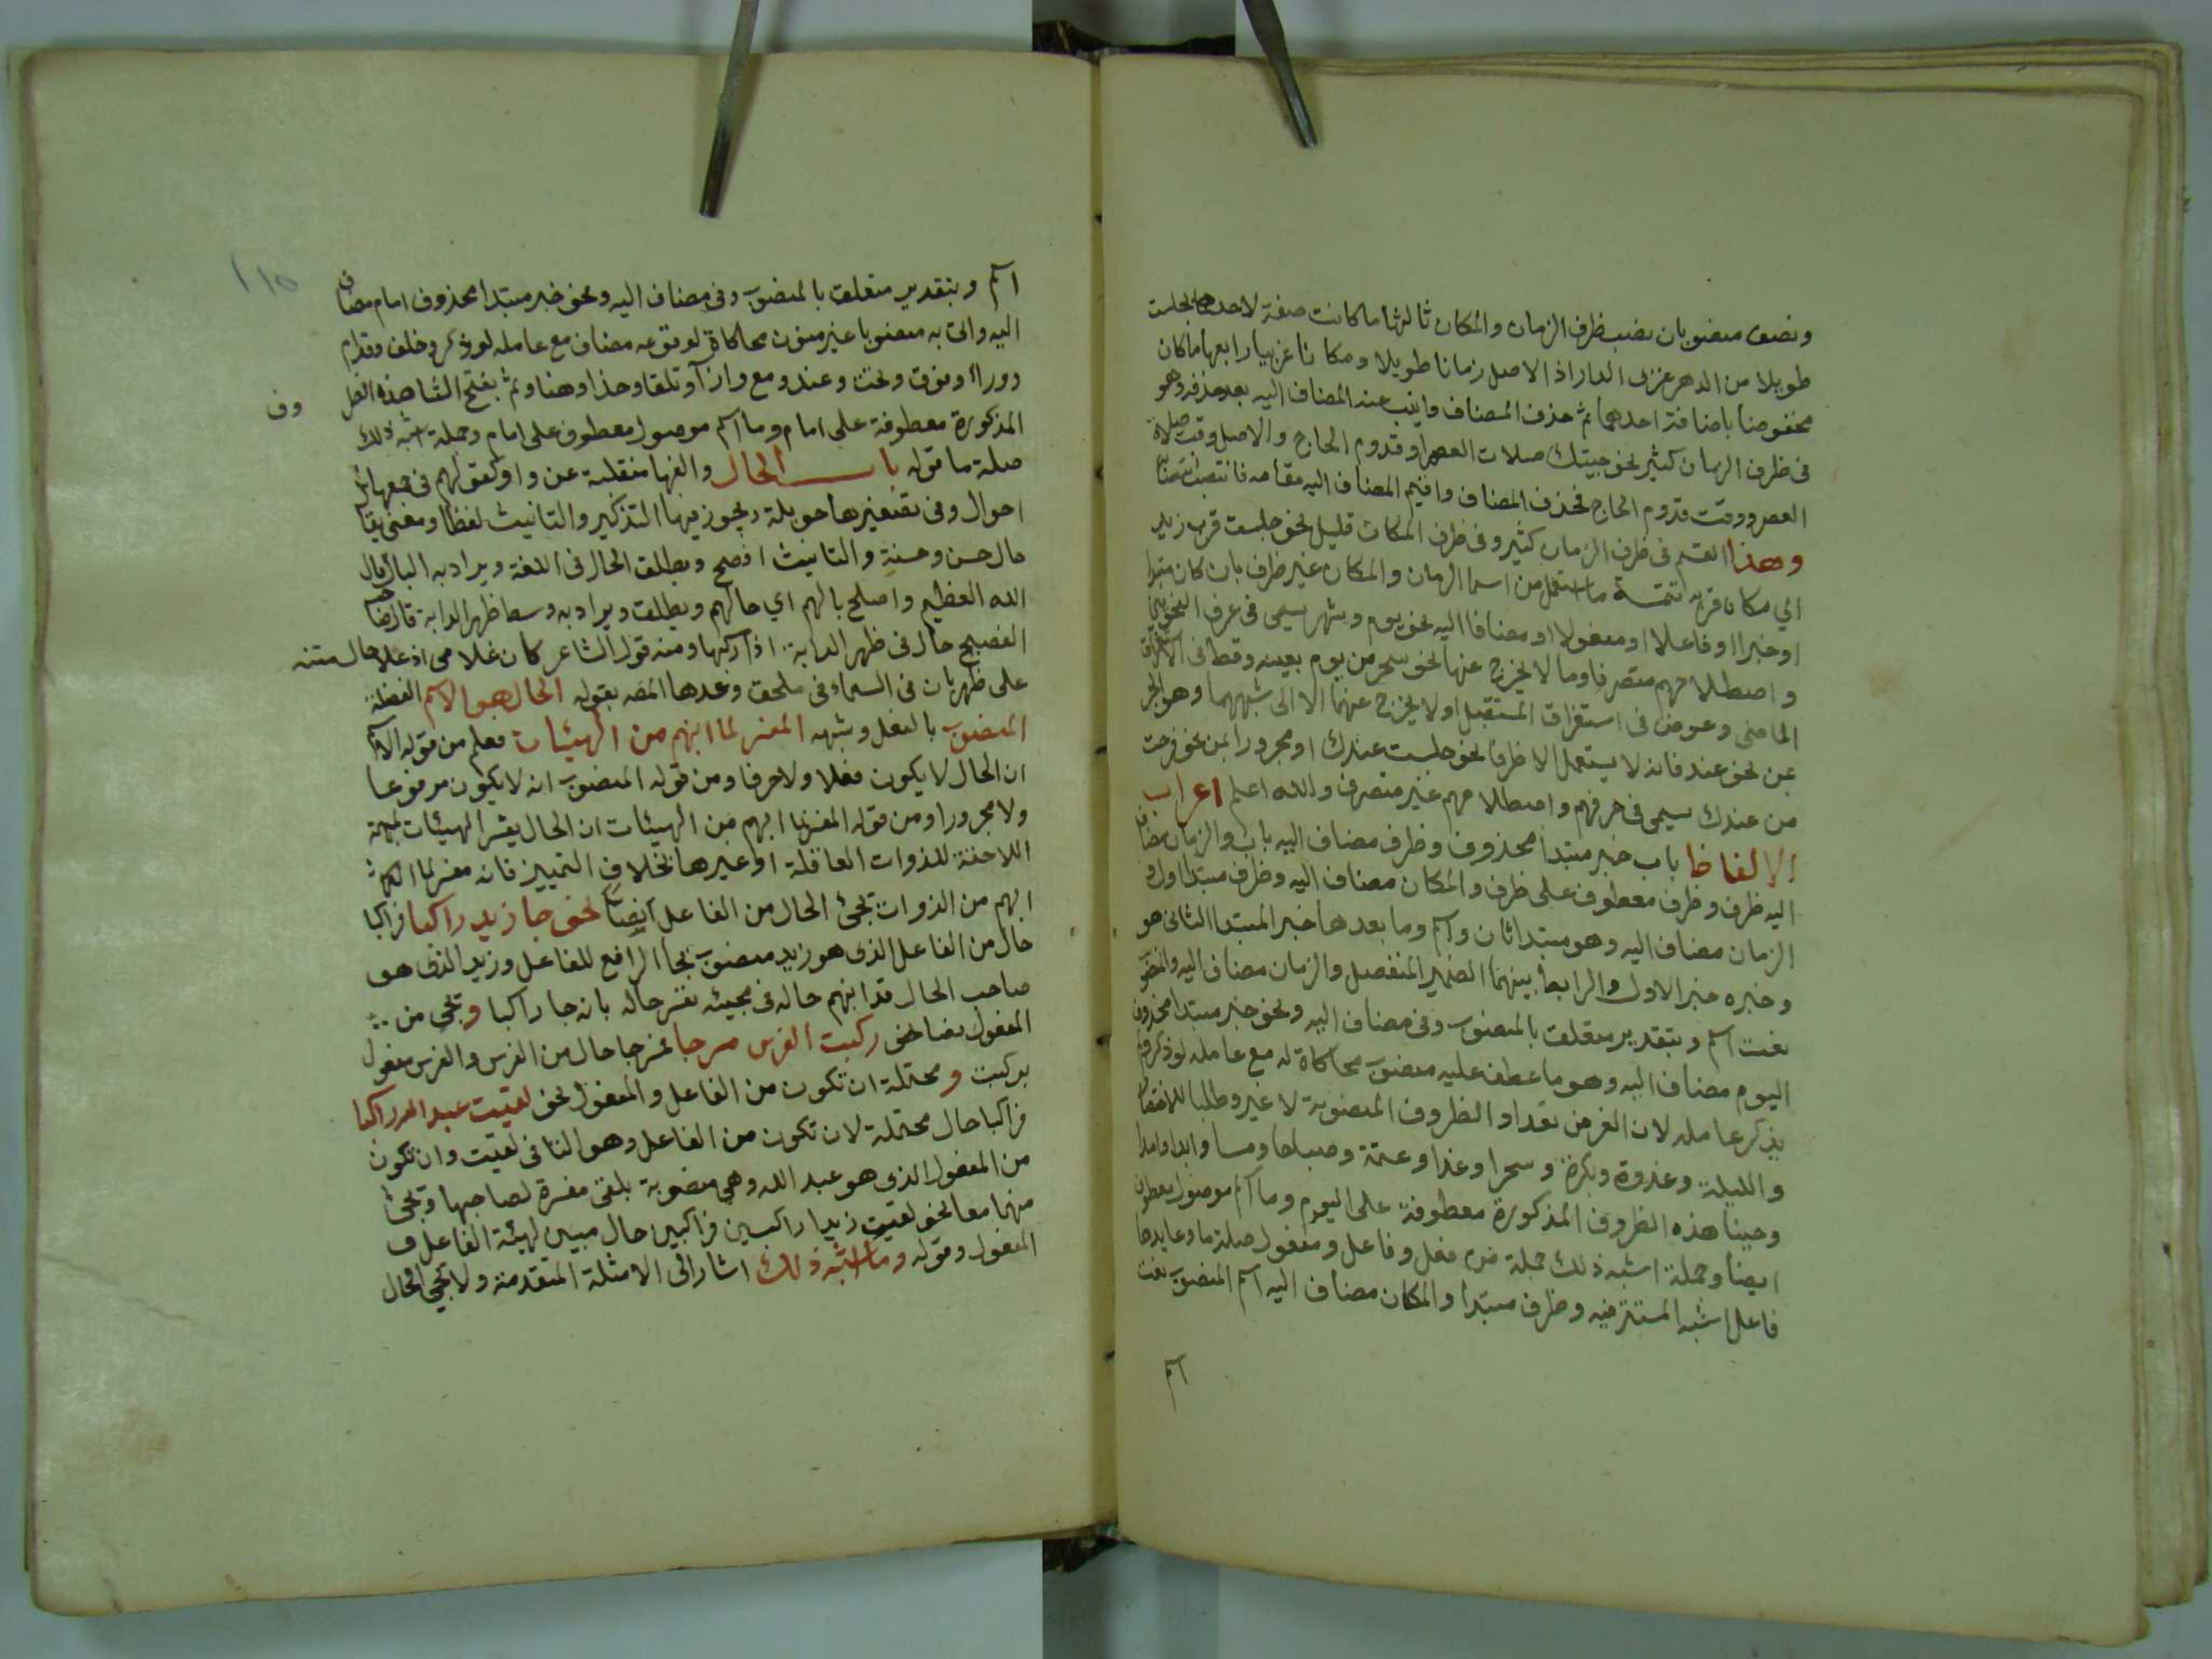 ونصف منصوبان نصب ظرف الزمان والمكان ثالثها ما كانت صفة لاحدهما كجلست
طويلا من الدهر غربي الدار اذ الاصل زمانا طويلا ومكانا غربيا رابعها ما كان
مخفوضا باضافة احدهما ثم حذف المضاف وانيب عنه المضاف اليه بعد حذفه وهو
فى ظرف الزمان كثير نحو جيتك صلات العصر او قدوم الحاج والاصل وقت صلاة
العصر ووقت قدوم الحاج فحذف المضاف واقيم المضاف اليه مقامه فانتصب انتصابه
وهذا القسم فى ظرف الزمان كثير وفى ظرف المكان قليل نحو جلست قرب زيد
اي مكان قربه تتمة ما استعمل من اسما الزمان والمكان غير ظرف بان كان مبتدا
او خبرا او فاعلا او مفعولا او مضافا اليه نحو يوم وشهر يسمى فى عرف النحويين
واصطلاحهم متصرفا وما لا يخرج عنها نحو سحر من يوم بعينه وقط فى استغراق
الماضى وعوض فى استغراق المستقبل او لا يخرج عنهما الا الى شبههما وهو الجر
بمن نحو عند فانه لا يستعمل الا ظرفا نحو جلست عندك او مجرورا بمن نحو خرجت
من عندك يسمى فى عرفهم واصطلاحهم غير متصرف والله اعلم اعراب
الالفاظ باب خبر مبتدا محذوف وظرف مضاف اليه باب والزمان مضاف
اليه ظرف وظرف معطوف على ظرف والمكان مضاف اليه وظرف مبتدا اول و
الزمان مضاف اليه وهو مبتدا ثان واسم وما بعدها خبر المبتدا الثانى هو
وخبره خبر الاول والرابط بينهما الضمير المنفصل والزمان مضاف اليه والمنصوب
نعت اسم وبتقدير متعلق بالمنصوب وفى مضاف اليه ونحو خبر مبتدا محذوف
اليوم مضاف اليه وهو وما عطف عليه منصوب محاكاة له مع عامله لو ذكر ولم
يذكر عامله لان الغرض تعداد الظروف المنصوبة لا غير وطلبا للاختصار
والليلة وغدوة وبكرة وسحرا وغدا وعتمة وصباحا ومسا وابدا وامدا
وحينا هذه الظروف المذكورة معطوفة على اليوم وما اسم موصول معطوف
ايضا وجملة اشبه ذلك جملة من فعل وفاعل ومفعول صلة ما وعايدها
فاعل اشبه المستتر فيه وظرف مبتدا والمكان مضاف اليه اسم المنصوب نعت
اسم
١١٥
اسم وبتقدير متعلق بالمنصوب وفى مضاف اليه ونحو خبر مبتدا محذوف امام مضاف
اليه واتى به منصوبا غير منون محاكاة لوقوعه مضاف مع عامله لو ذكر وخلف وقدام
ووراء وفوق وتحت وعند ومع وازآ وتلقا وحذا وهنا وثم بفتح الثا هذه الظروف
المذكورة معطوفة على امام وما اسم موصول معطوف على امام وجملة اشبه ذلك
صلة ما قوله باب الحال والفها منقلبة عن واو كقولهم فى جمعها
احوال وفى تصغيرها حويلة ويجوز فيها التذكير والتانيث لفظا ومعنى يقا
حال حسن وحسنة والتانيث افصح ويطلق الحال فى اللغة ويراد به البال قال
الله العظيم واصلح بالهم اي حالهم ويطلق ويراد به وسط ظهر الدابة قال صا
الفصيح حال فى ظهر الدابة اذا ركبها ومنه قول الشاعر كان غلامى اذ علا حال متنه
على ظهر بان فى السماء فى ملحق وعدها المصه بقوله الحال هو الاسم الفضلة
المنصوب بالفعل وشبهه المفسر لما انبهم من الهيئات فعلم من قوله الاسم
ان الحال لا يكون فعلا ولا حرفا ومن قوله المنصوب انه لا يكون مرفوعا
ولا مجرورا ومن قوله المفسر لما ابهم من الهيئات ان الحال يفسر الهيئات المبهمة
اللاحقة للذوات العاقلة او غيرها بخلاف التمييز فانه مفسر لما
ابهم من الذوات تجئ الحال من الفاعل ايضا نحو جا زيد راكبا فراكبا
حال من الفاعل الذى هو زيد منصوب بجا الرافع للفاعل وزيد الذى هو
صاحب الحال قد انبهم حاله فى مجيئه ففسر حاله بانه جا راكبا وتجئ من
المفعول نصا نحو ركبت الفرس مسرجا فمسرجا حال من الفرس والفرس مفعول
بركبت ومحتملة ان تكون من الفاعل والمفعول نحو لقيت عبد الله راكبا
فراكبا حال محتملة لان تكون من الفاعل وهو التا فى لقيت وان تكون
من المفعول الذى هو عبد الله وهي منصوبة بلقى مفسرة لصاحبها وتجئ
منهما معا نحو لقيت زيدا راكبين فراكبين حال مبين لهيئة الفاعل و
المفعول وقوله وما اشبه ذلك اشار الى الامثلة المتقدمة ولا تجئ الحال